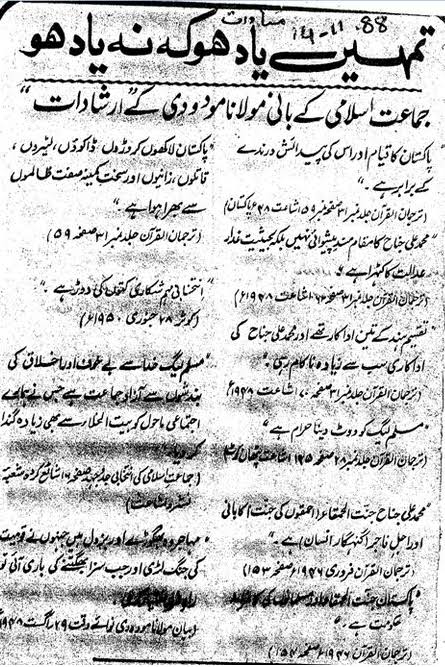 مساوات
14-11-88
تمہیں یاد ہو کہ نہ یاد ہو
جماعت اسلامی کے بانی مولانا مودودی کے "ارشادات"
"پاکستان کا قیام اور اس کی پیدائش درندے
کے برابر ہے۔"
(ترجمان القرآن جلد نمبر ۳۱ صفحہ نمبر ۵۹ اشاعت ۴۸ء پاکستان)
"محمد علی جناح کا مقام مسند پیشوائی نہیں بلکہ بحیثیت غدار
عدالت کا کٹہرا ہے۔"
(ترجمان القرآن جلد نمبر ۳۱ صفحہ اشاعت ۱۹۴۸ء)
تقسیم ہند کے تین اداکار تھے اور محمد علی جناح کی
اداکاری سب سے زیادہ ناکام رہی۔"
(ترجمان القرآن جلد نمبر ۳۱ صفحہ ۷۰ اشاعت ۱۹۴۸ء)
"مسلم لیگ کو ووٹ دینا حرام ہے"
(ترجمان القرآن جلد نمبر ۲۸ صفحہ ۱۲۵ اشاعت پٹھان کوٹ)
"محمد علی جناح جنت الحمقاء (احمقوں کی جنت) کا بانی
اور اجل فاجر (گنہگار انسان) ہے۔"
(ترجمان القرآن فروری ۱۹۴۶ء صفحہ ۱۵۳)
"پاکستان جنت الحمقاء اور مسلمانوں کی کافرانہ
حکومت ہے۔"
(ترجمان القرآن ۱۹۴۶ء صفحہ ۱۵۴)
"پاکستان لاکھوں کروڑوں، ڈاکوؤں، لٹیروں،
قاتلوں، زانیوں اور سخت کمینہ صفت ظالموں
سے بھرا ہوا ہے۔"
(ترجمان القرآن جلد نمبر ۳۱ صفحہ ۵۹)
"انتخابی مہم شکاری کتوں کی دوڑ ہے۔"
(کوثر ۲۸ جنوری ۱۹۵۰ء)
"مسلم لیگ خدا سے بے خوف اور اخلاق کی
بندشوں سے آزاد جماعت ہے جس نے ہمارے
اجتماعی ماحول کو بیت الخلاء سے بھی زیادہ گندا
کر دیا۔"
(جماعت اسلامی کی انتخابی جدوجہد صفحہ ۶ شائع کردہ شعبہ
نشر و اشاعت)
"مہاجر وہ بھگوڑے اور بزدل ہیں جنہوں نے قومیت
کی جنگ لڑی اور جب سزا بھگتنے کی باری آئی تو
راہ فرار
(بیان مولانا مودودی نوائے وقت ۲۹ اگست ۱۹۴۸ء)